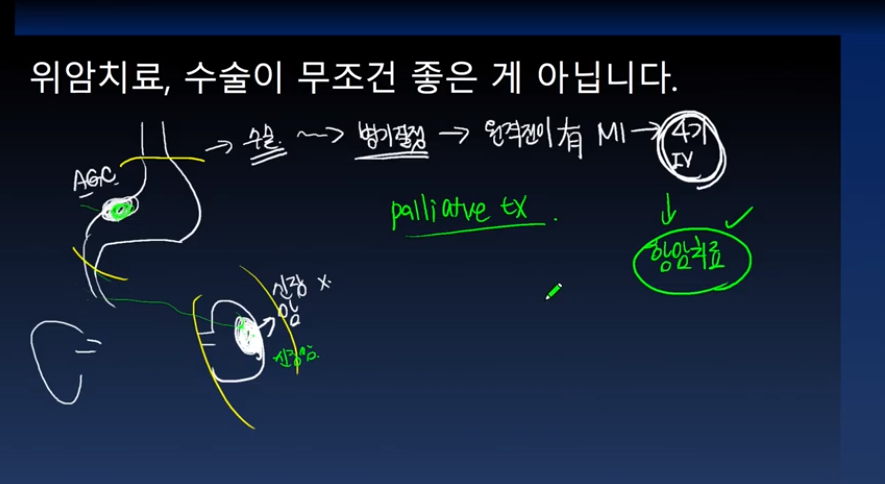 위암치료, 수술이 무조건 좋은 게 아닙니다.
→ 수술 ~→ 병기결정 → 원격전이 有 M1 → 4기
IV
AGC
palliatve tx.
↓ ✓
항암치료
신장 x.
암
신장암.